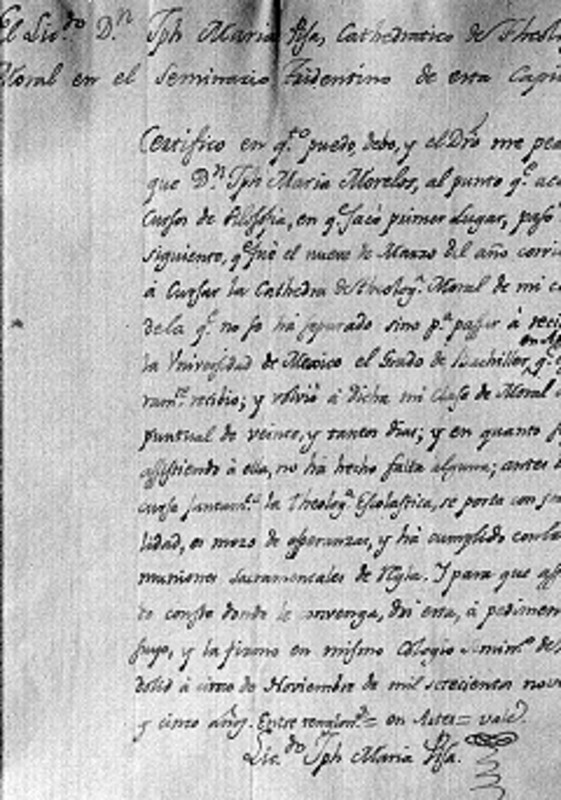 El Lic.do D.n Jph Maria Pisa, Cathedratico de Theolo
Moral en el Seminario Tridentino de esta Capi
Certifico en q.to puedo, debo, y el Dro me pe
que D.n Jph Maria Morelos, al punto q.e ac
Cursos de Filosofia, en q.e sacó primer Lugar, pasó
siguiente, q.e fué el nueve de Marzo del año corri
á Cursar la Cathedra de Theolog.a Moral de mi c
dela q.e no se há separado sino p.a passar á reci
en A
la Universidad de Mexico el Grado de Bachiller, q.e
ram.te recibio; y volvió á dicha mi Clase de Moral
puntual de veinte, y tantos dias; y en quanto
assistiendo á ella, no há hecho falta alguna; antes
cursa juntam.te la Theolog.a Escolastica, se porta con
lidad, es mozo de esperanzas, y há cumplido con la
muniones Sacramentales de Regla. Y para que ass
to conste donde le convenga, doi esta, á pedimen
suyo, y la firmo en mismo Colegio Semin.o de
dolid á cinco de Noviembre de mil setecientos nov
y cinco años. Entre renglon.s = en Artes = vale.
Lic.do Jph Maria Pisa.